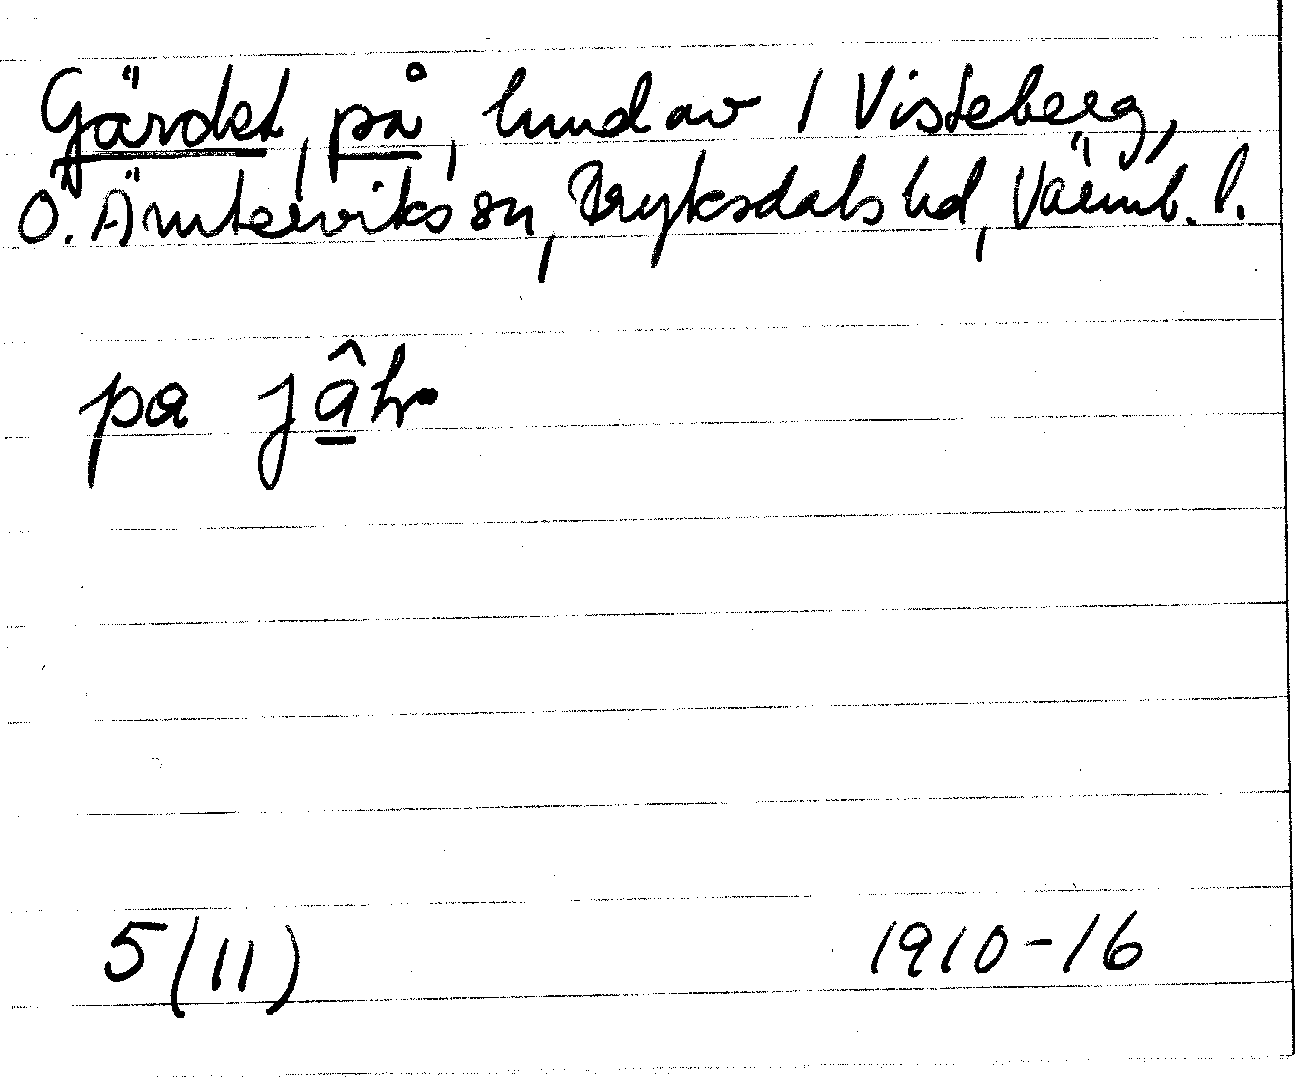 Gärdet, på, hmd av 1 Visteberg,
Ö. Ämterviks sn, Fryksdals hd, Värml. l.
pa jâ̱h
5 (11) 1910-16